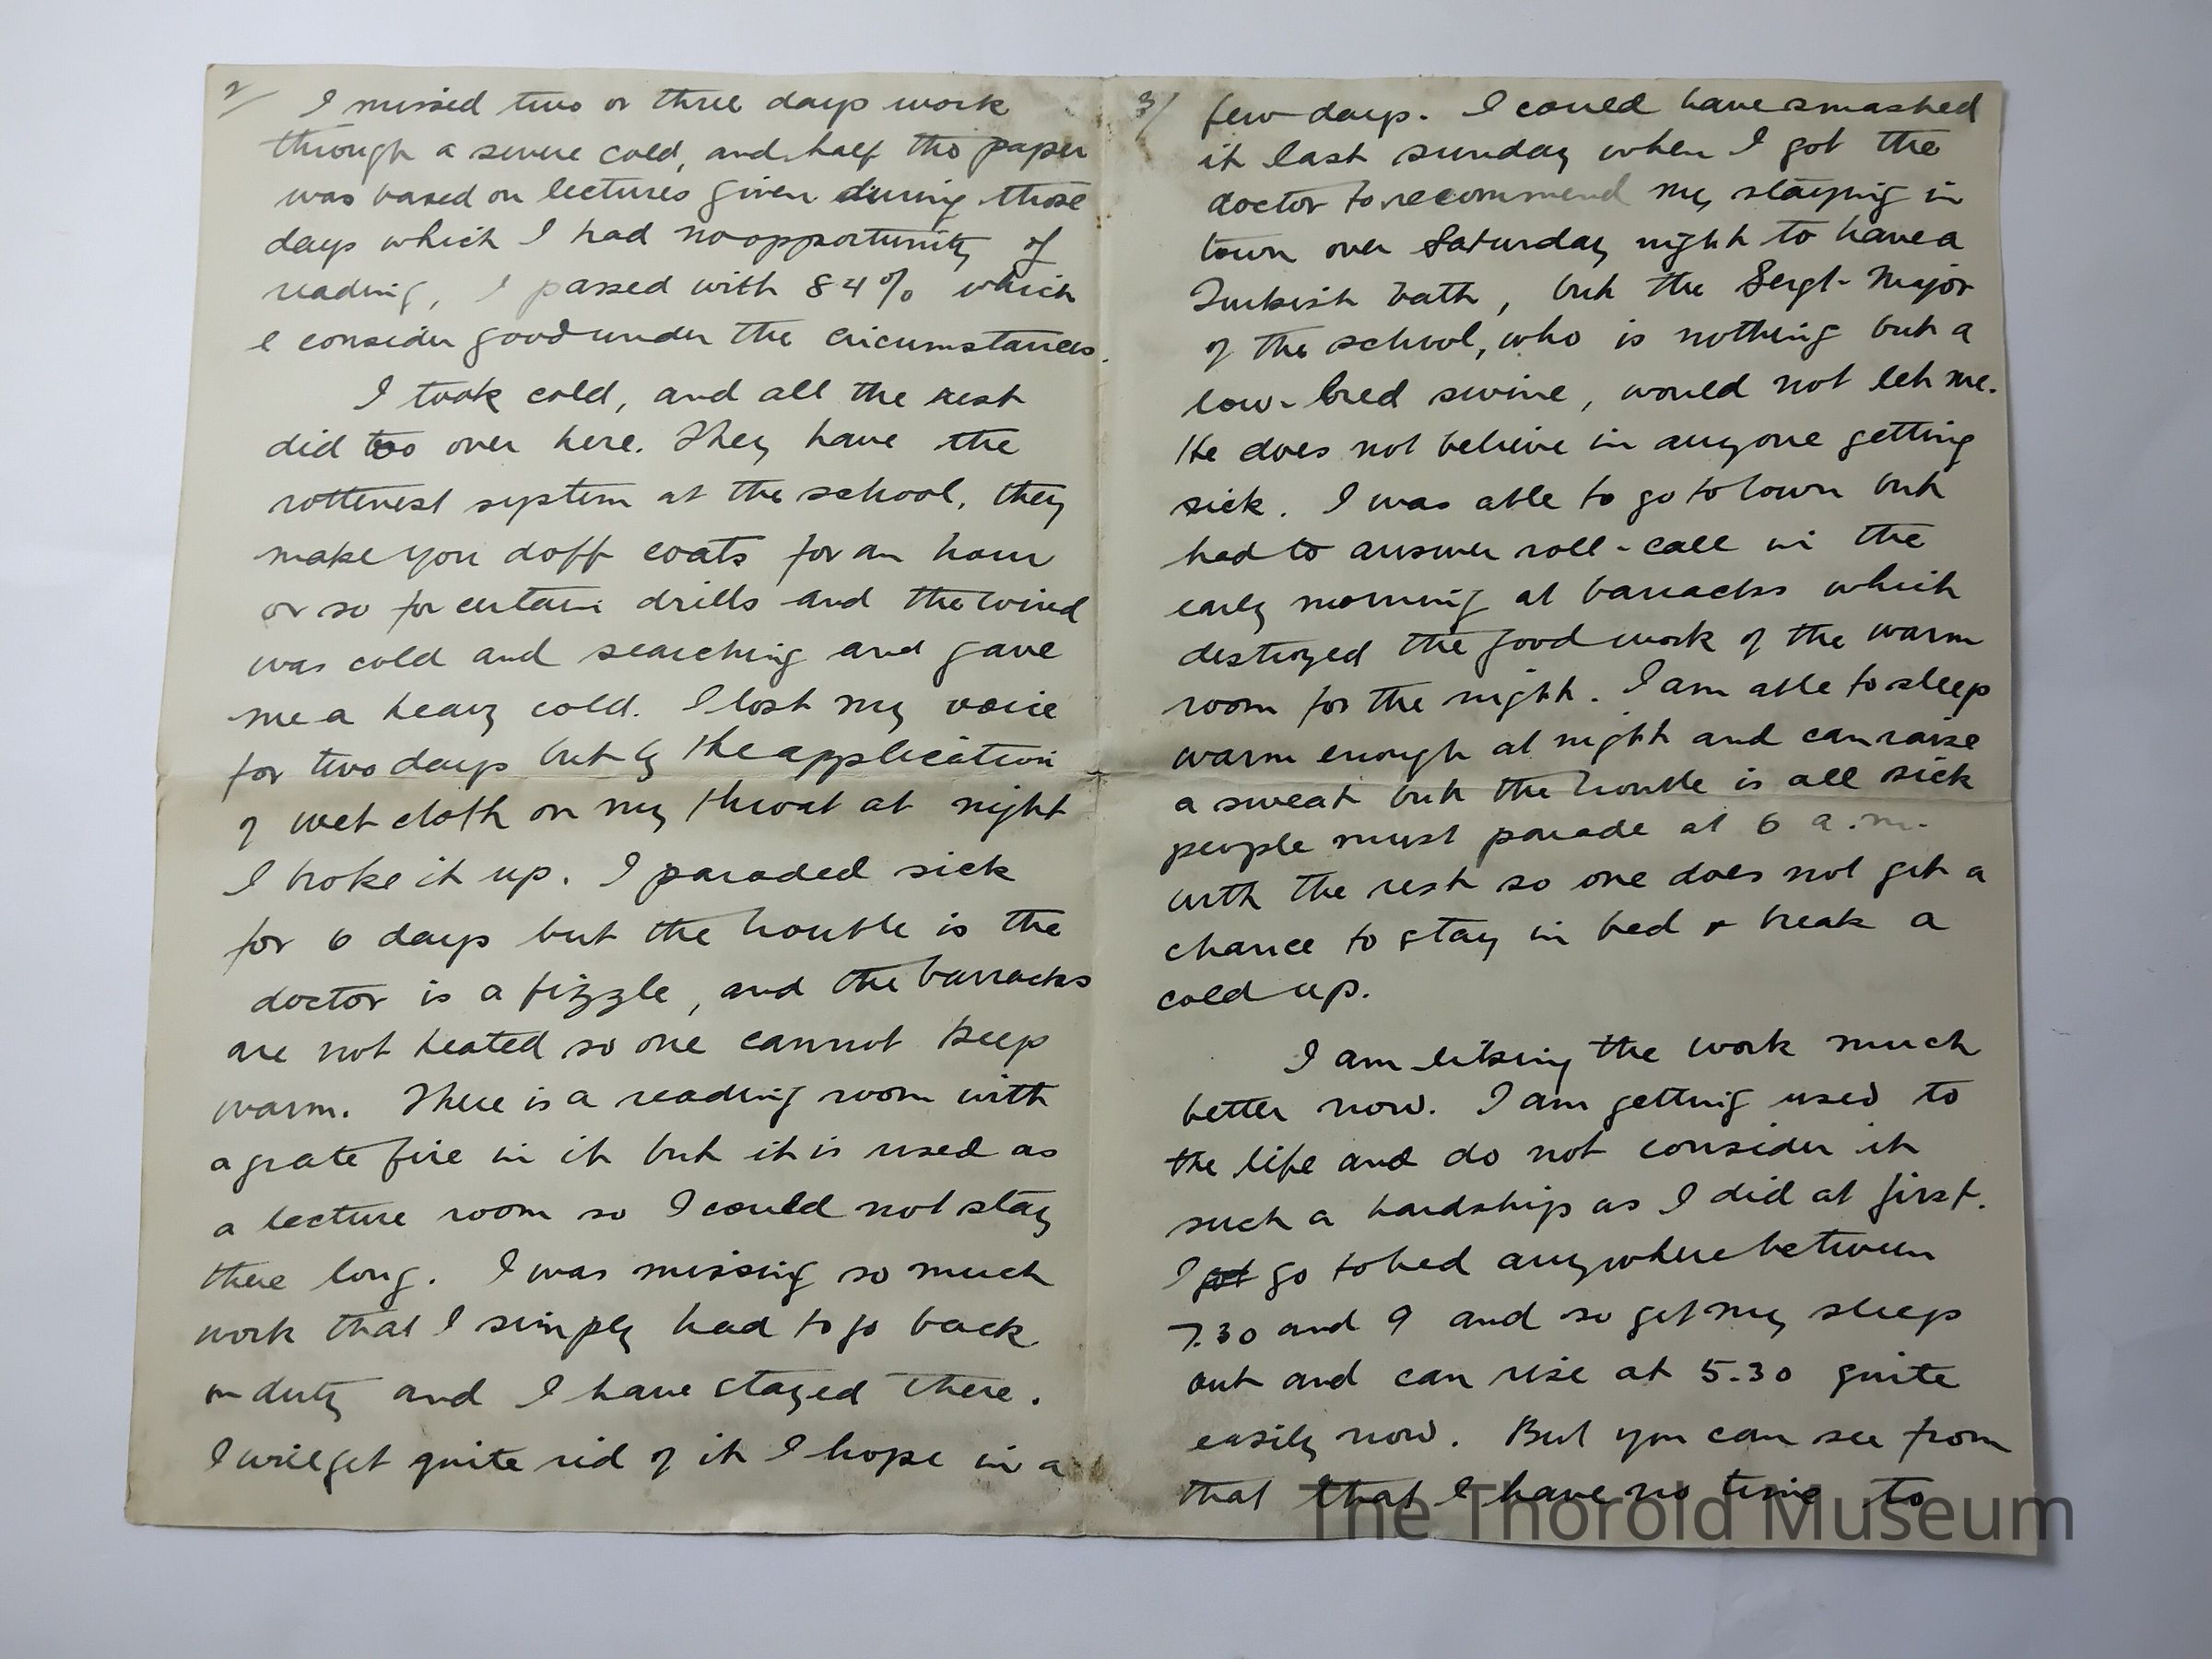 2/ I missed two or three days work
through a severe cold, and half the paper
was based on lectures given during those
days which I had no opportunity of
reading, I passed with 84% which
I consider good under the circumstances.
I took cold, and all the rest
did too over here. They have the
rottenest system at the school, they
make you doff coats for an hour
or so for certain drills and the wind
was cold and searching and gave
me a heavy cold. I lost my voice
for two days but by the application
of wet cloth on my throat at night
I broke it up. I paraded sick
for 6 days but the trouble is the
doctor is a fizzle, and the barracks
are not heated so one cannot keep
warm. There is a reading room with
a grate fire in it but it is used as
a lecture room so I could not stay
there long. I was missing so much
work that I simply had to go back
on duty and I have stayed there.
I will get quite rid of it I hope in a
3/ few days. I could have smashed
it last sunday when I got the
doctor to recommend my staying in
town over Saturday night to have a
Turkish bath, but the Sergt-Major
of the school, who is nothing but a
low-bred swine, would not let me.
He does not believe in anyone getting
sick. I was able to go to town but
had to answer roll-call in the
early morning at barracks which
destroyed the good work of the warm
room for the night. I am able to sleep
warm enough at night and can raise
a sweat but the trouble is all sick
people must parade at 6 a.m.
with the rest so one does not get a
chance to stay in bed & break a
cold up.
I am liking the work much
better now. I am getting used to
the life and do not consider it
such a hardship as I did at first.
I go to bed anywhere between
7.30 and 9 and so get my sleep
out and can rise at 5.30 quite
easily now. But you can see from
that that I have no time to
The Thorold Museum